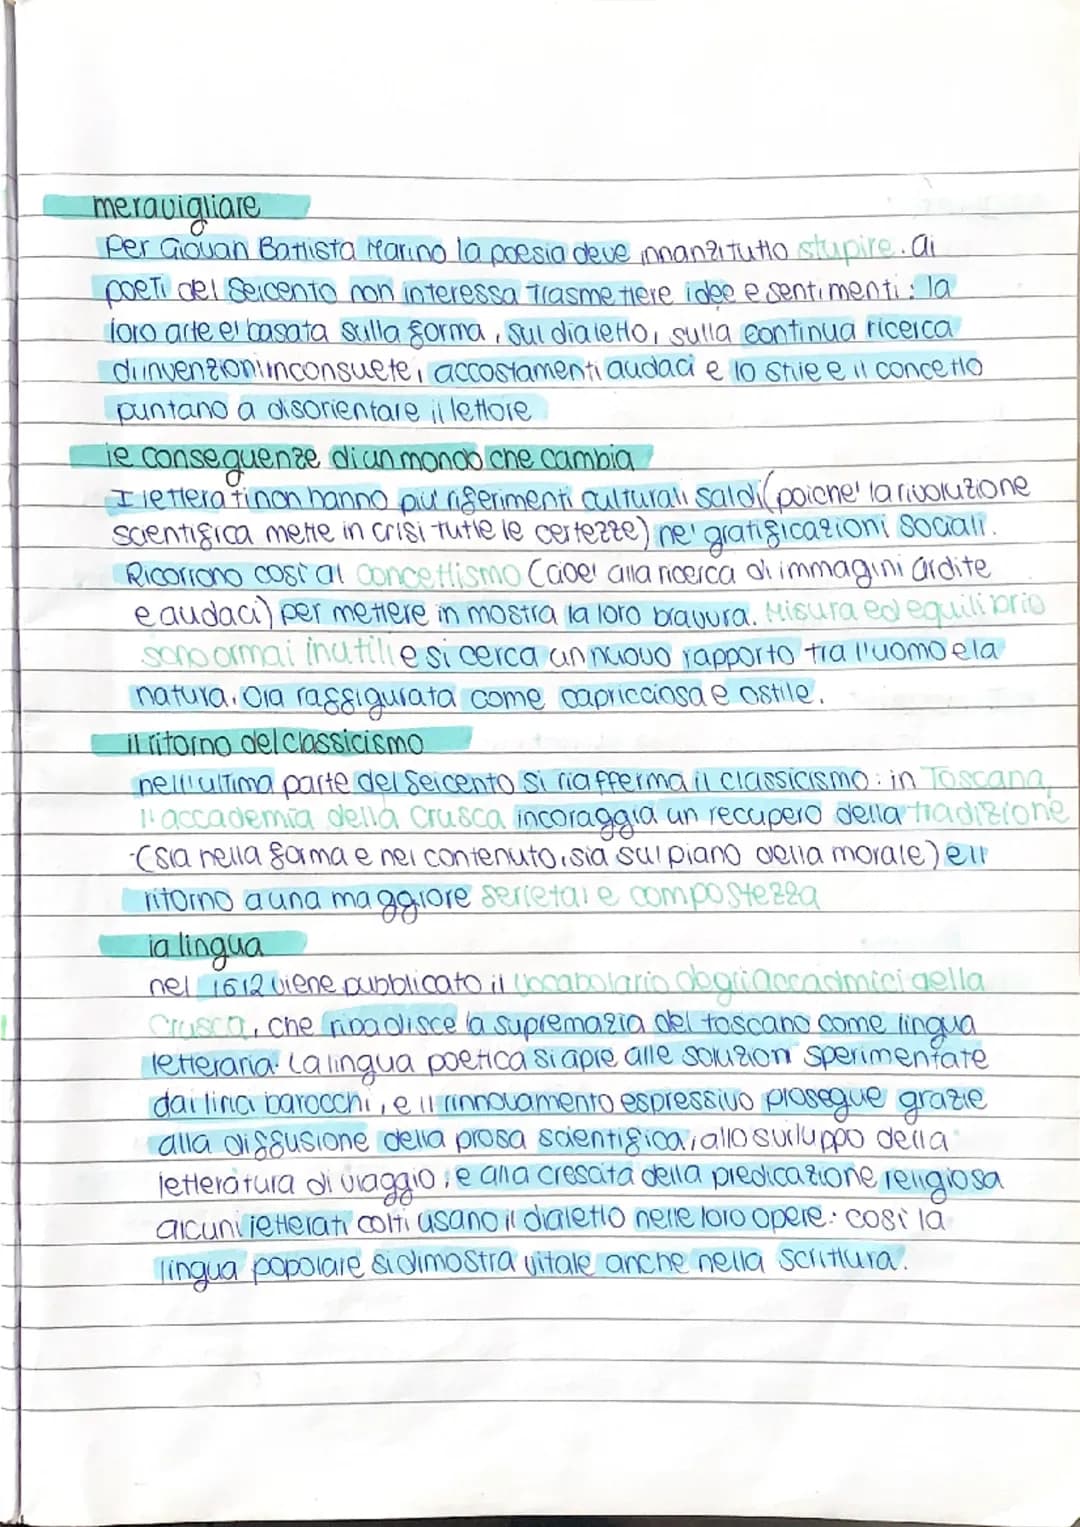 meravigliare
Per Giovan Battista Marino la poesia deve innanzitutto stupire. Ai
poeti del Seicento non interessa trasmettere idee e sentimenti: la
loro arte e' basata sulla forma, sul dialetto, sulla continua ricerca
di invenzioni inconsuete, accostamenti audaci e lo stile e il concetto
puntano a disorientare il lettore
le conseguenze di un mondo che cambia
I letterati non hanno piu' riferimenti culturali saldi (poiche' la rivoluzione
scientifica mette in crisi tutte le certezze) ne' gratificazioni sociali.
Ricorrono cosi' al concettismo (cioe' alla ricerca di immagini ardite
e audaci) per mettere in mostra la loro bravura. Misura ed equilibrio
sono ormai inutili e si cerca un nuovo rapporto tra l'uomo e la
natura, ora raffigurata come capricciosa e ostile.
il ritorno del classicismo
nell'ultima parte del Seicento si riafferma il classicismo: in Toscana,
l'accademia della Crusca incoraggia un recupero della tradizione
(sia nella forma e nel contenuto, sia sul piano della morale) e il
ritorno a una maggiore serieta' e compostezza
la lingua
nel 1612 viene pubblicato il vocabolario degli accadmici della
Crusca, che ribadisce la supremazia del toscano come lingua
letteraria. La lingua poetica si apre alle soluzioni sperimentate
dai lirici barocchi, e il rinnovamento espressivo prosegue grazie
alla diffusione della prosa scientifica, allo sviluppo della
letteratura di viaggio, e alla crescita della predicazione religiosa
alcuni letterati colti usano il dialetto nelle loro opere: cosi' la
lingua popolare si dimostra vitale anche nella scrittura.